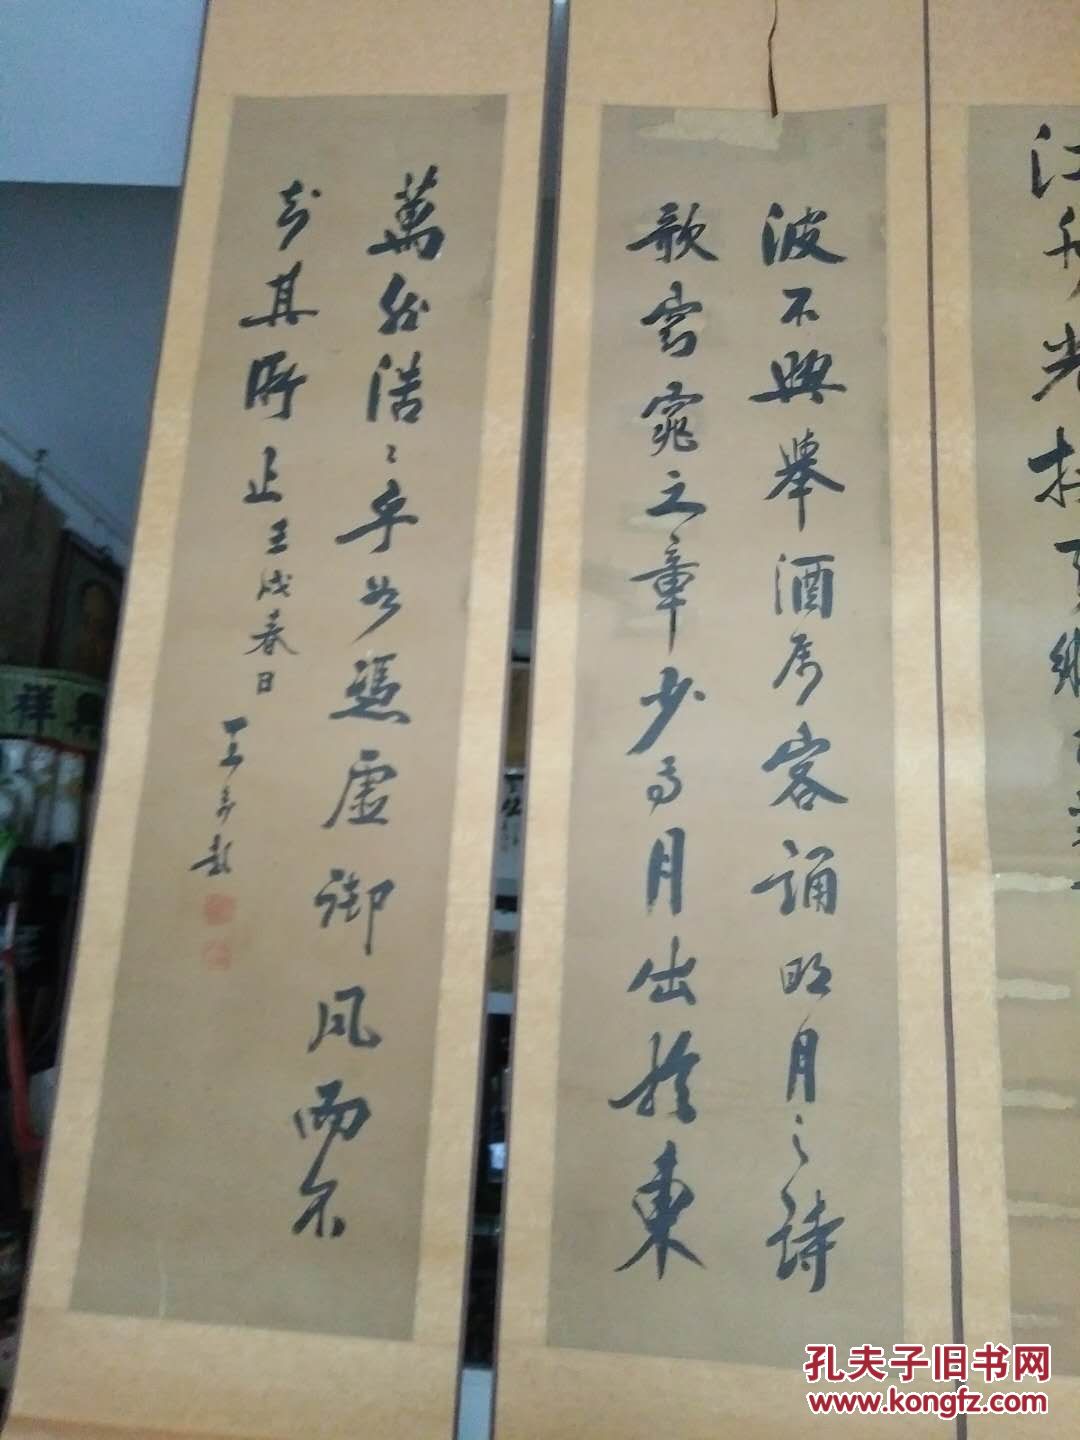 江
光接
波不興舉酒属客誦明月之詩
歌窈窕之章少焉月出於東
萬然浩〻乎如憑虛御風而不
知其所止壬戌春日
祥
孔夫子旧书网
www.kongfz.com